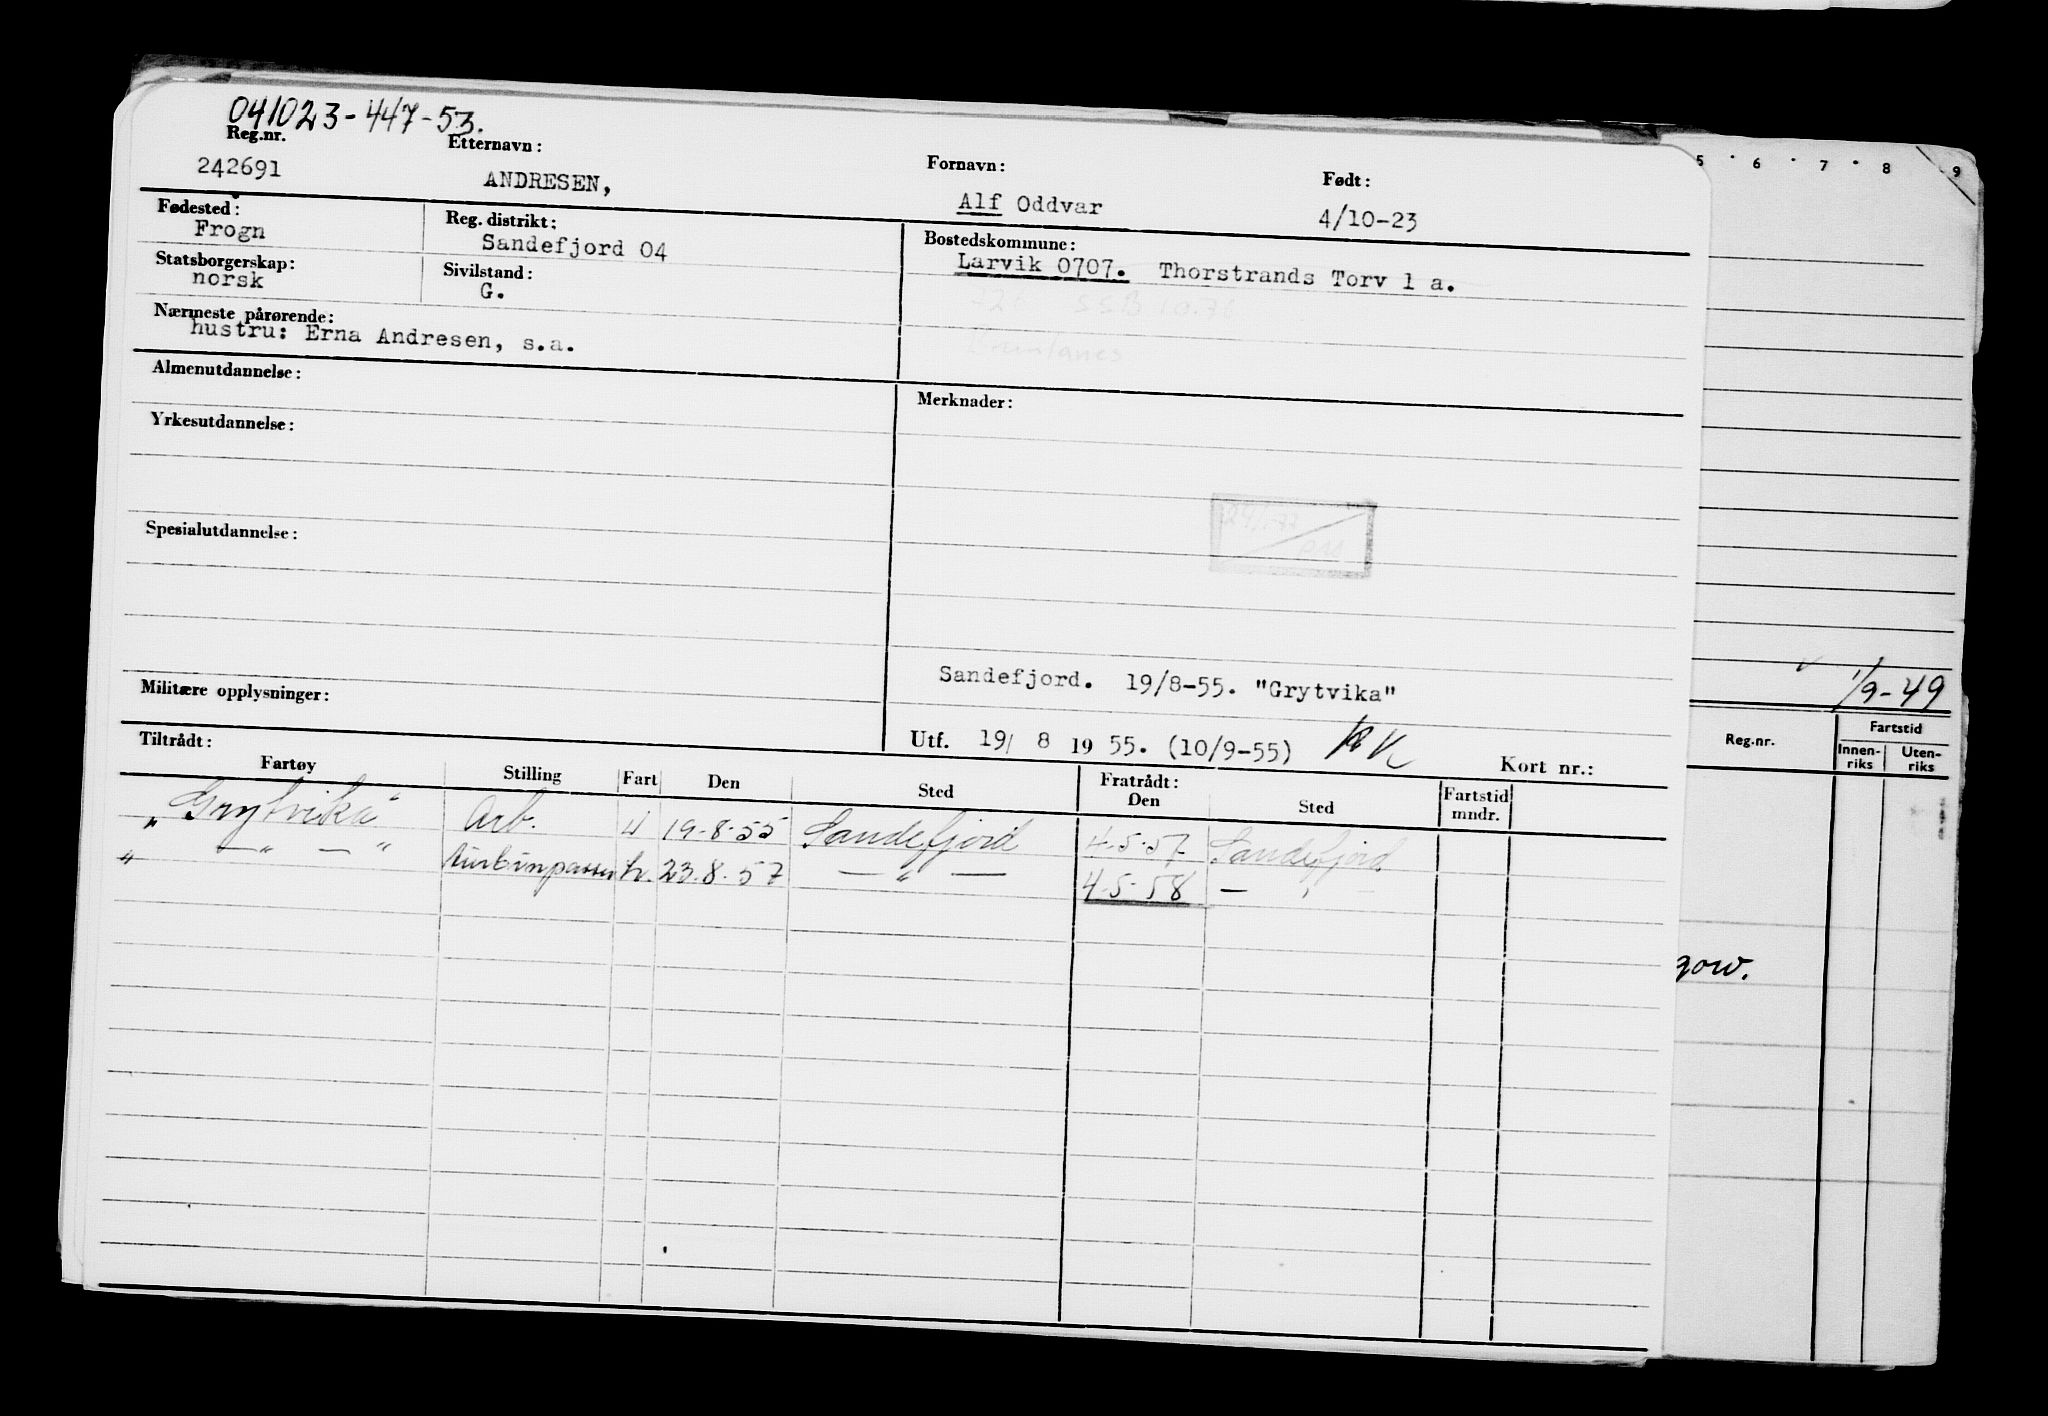 041023-447-53.
Reg.nr. Etternavn: Fornavn: Født:
242691 ANDRESEN, Alf Oddvar 4/10-23
Fødested: Reg. distrikt: Bostedskommune:
Frogn Sandefjord 04 Larvik 0707. Thorstrands Torv 1 a.
Statsborgerskap: Sivilstand:
norsk G.
SSB 10.76
Nærmeste pårørende:
hustru: Erna Andresen, s.a.
Almenutdannelse: Merknader:
Yrkesutdannelse:
Spesialutdannelse:
Sandefjord. 19/8-55. "Grytvika"
Militære opplysninger:
Utf. 19/ 8 19 55. (10/9-55) Kort nr.:
Tiltrådt: Fratrådt:
Fartøy Stilling Fart Den Sted Den Sted Fartstid mndr.
"Grytvika" Arb. U 19-8-55 Sandefjord 4-5-57 Sandefjord
" — " — " turbinpasser h. 23.8.57 — " — 4-5-58 — "
5 · 6 · 7 · 8 9
1/9-49
Reg.nr. Fartstid
Innen-riks Uten-riks
gow.